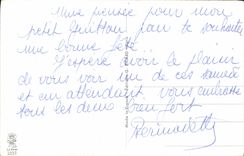 Une pensée pour mon
petit Guitton pour te souhaiter
une bonne fête..
J'espère avoir le plaisir
de vous voir un de ces samedis
et en attendant vous embrasse
tous les deux bien fort
Bernadette